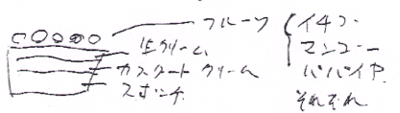 フルーツ
生クリーム
カスタードクリーム
スポンチ
イチゴ
マンゴー
パパイヤ
それぞれ